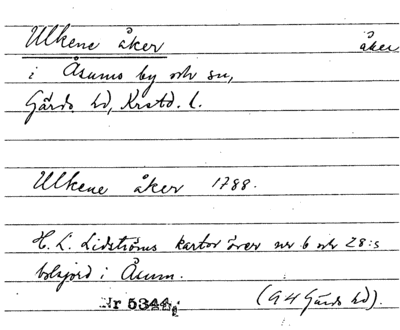 Ulkene åker åker
i Åsums by och sn,
Gärds hd, Krstd. l.
Ulkene åker 1788.
H. L. Lidströms kartor över nr 6 och 28:s
bolsjord i Åsum.
Nr 5344 (G 4 Gärds hd).